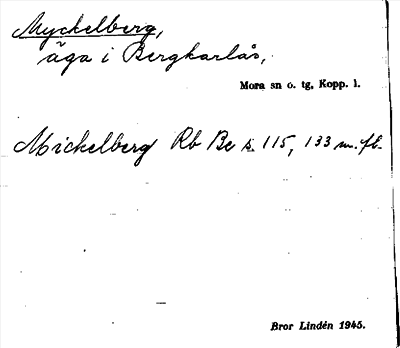 Myckelberg,
äga i Bergkarlås,
Mora sn o. tg, Kopp. l.
Mickelberg Rb Be s. 115, 133 m. fl.
Bror Lindén 1945.